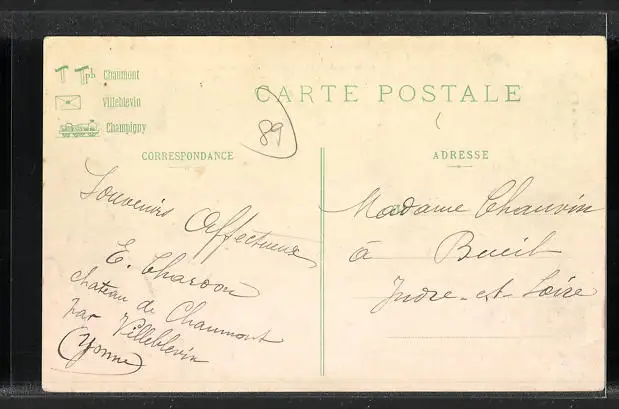 T Tph Chaumont
Villeblevin
Champigny
CARTE POSTALE
89
CORRESPONDANCE
ADRESSE
Souvenirs Affectueux
E. Charon
chateau de Chaumont
par Villeblevin
(Yonne)
Madame Chauvin
à Bueil
Indre-et-Loire